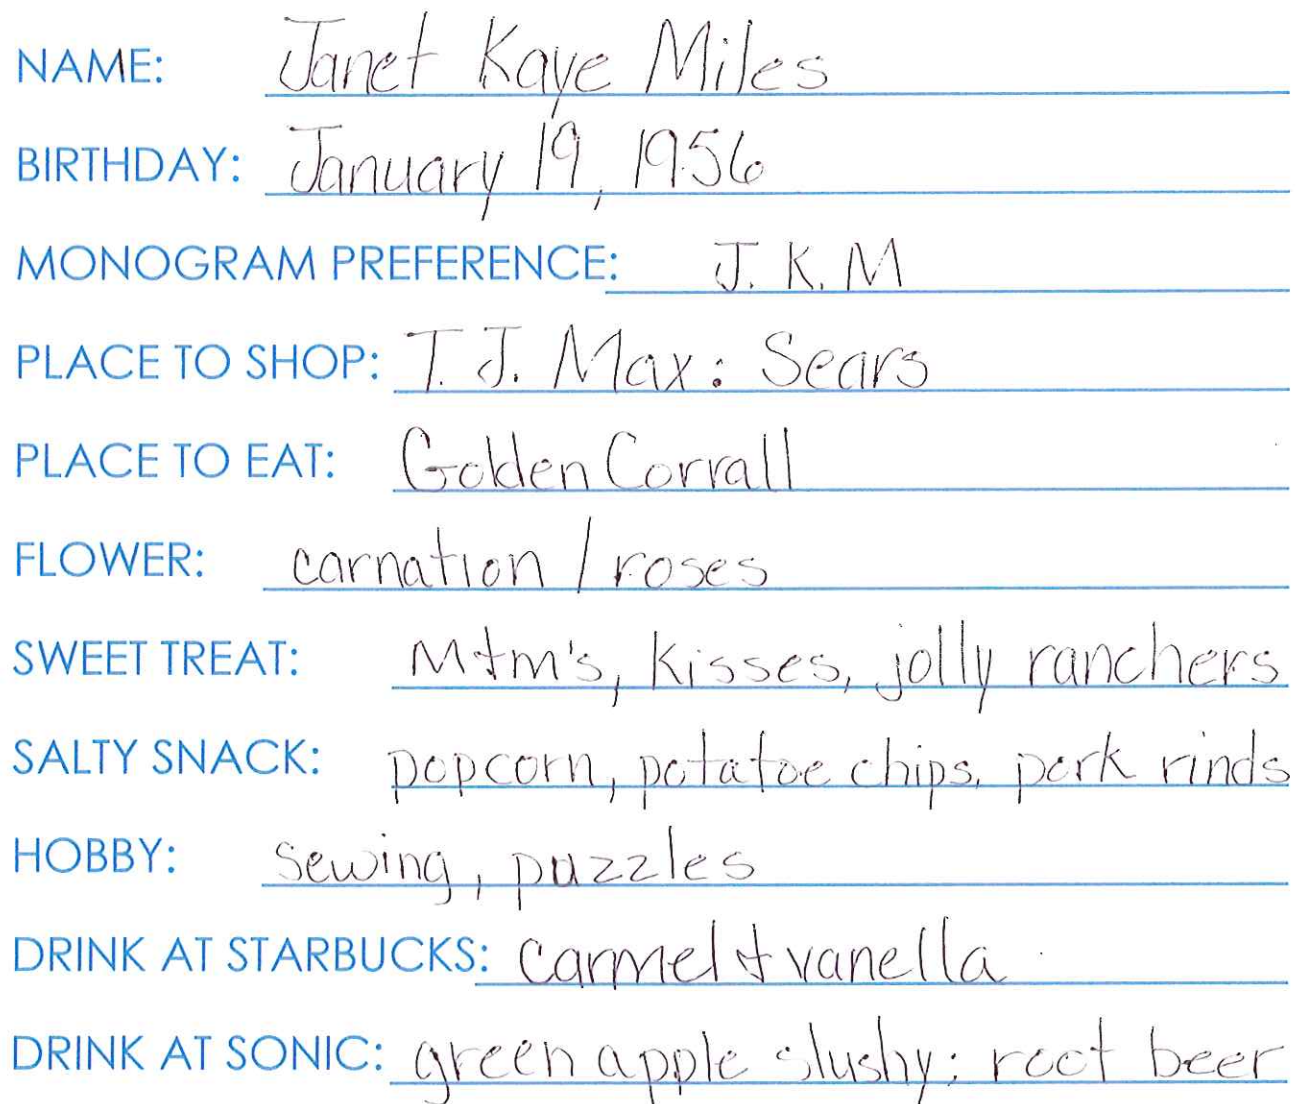 NAME: Janet Kaye Miles
BIRTHDAY: January 19, 1956
MONOGRAM PREFERENCE: J. K. M
PLACE TO SHOP: T. J. Max: Sears
PLACE TO EAT: Golden Corrall
FLOWER: carnation / roses
SWEET TREAT: M+m's, kisses, jolly ranchers
SALTY SNACK: popcorn, potatoe chips, pork rinds
HOBBY: sewing, puzzles
DRINK AT STARBUCKS: Carmel + vanella
DRINK AT SONIC: green apple slushy; root beer